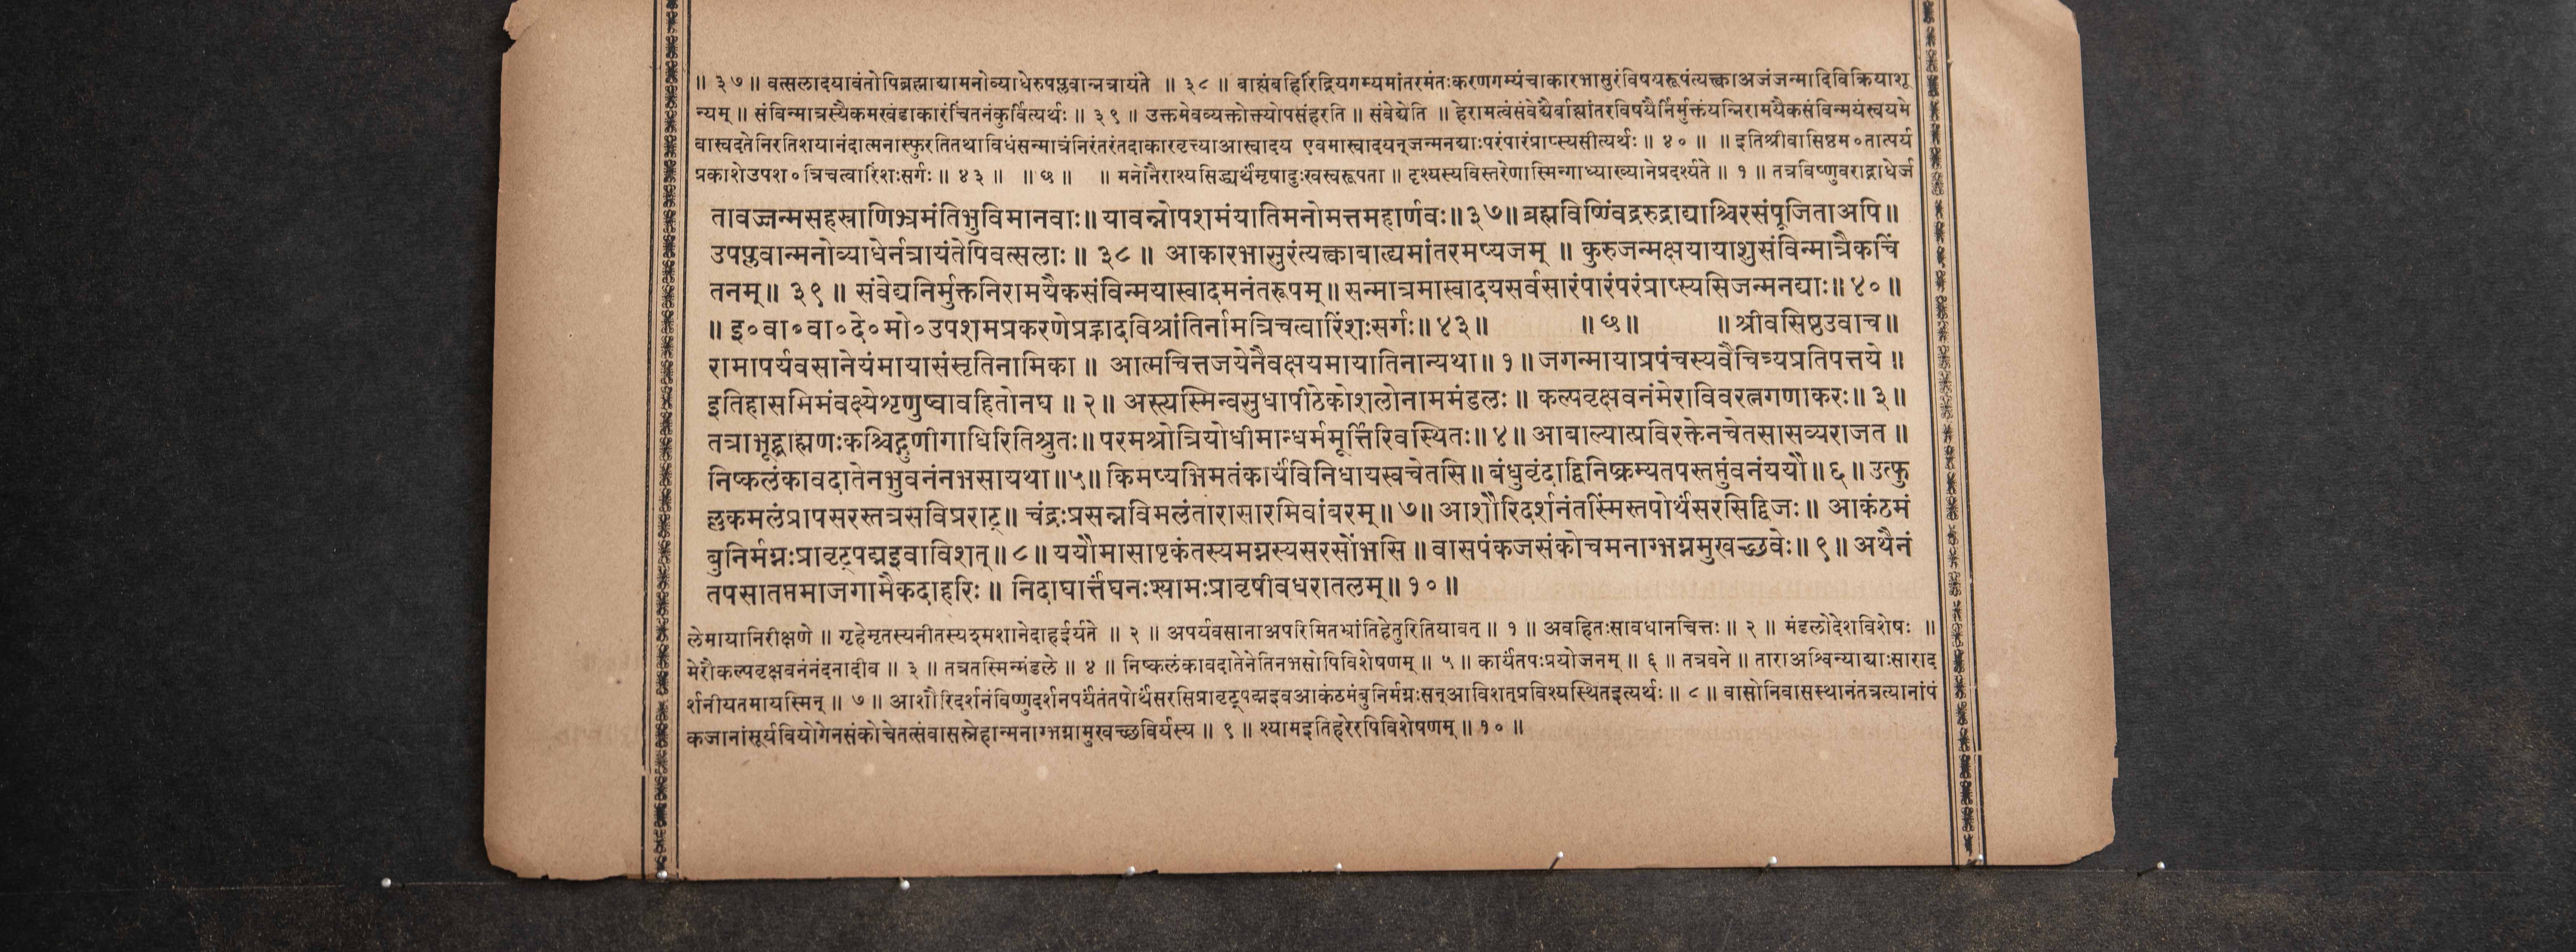 ॥ ३७ ॥ वत्सलादयावंतोपिब्रह्माद्यामनोव्याधेरुपप्लवान्नत्रायंते ॥ ३८ ॥ बाह्यंबहिरिंद्रियगम्यमांतरमंतःकरणगम्यंचाकारभासुरंविषयरूपंत्यक्त्वाअजंजन्मादिविक्रियाशू
न्यम् ॥ संविन्मात्रस्यैकमखंडाकारंचिंतनंकुर्वित्यर्थः ॥ ३९ ॥ उक्तमेवव्यक्तोक्त्योपसंहरति ॥ संवेद्येति ॥ हेरामत्वंसंवेद्यैर्बाह्यांतरविषयैर्निर्मुक्तंयन्निरामयैकसंविन्मयंस्वयमे
वास्वदतेनिरतिशयानंदात्मनास्फुरतितथाविधंसन्मात्रंनिरंतरंतदाकारवृत्त्याआस्वादय एवमास्वादयन्जन्मनद्याःपरंपारंप्राप्स्यसीत्यर्थः ॥ ४० ॥ ॥ इतिश्रीवासिष्ठम०तात्पर्य
प्रकाशेउपश०त्रिचत्वारिंशःसर्गः ॥ ४३ ॥ ॥ छ ॥ ॥ मनोनैराश्यसिद्ध्यर्थंमृषादुःखस्वरूपता ॥ दृश्यस्यविस्तरेणास्मिन्गाध्याख्यानेप्रदर्श्यते ॥ १ ॥ तत्रविष्णुवराद्गाधेर्ज
तावज्जन्मसहस्राणिभ्रमंतिभुविमानवाः॥ यावन्नोपशमंयातिमनोमत्तमहार्णवः॥ ३७॥ ब्रह्मविष्ण्विंद्ररुद्राद्याश्चिरसंपूजिताअपि॥
उपप्लवान्मनोव्याधेर्नत्रायंतेपिवत्सलाः॥ ३८ ॥ आकारभासुरंत्यक्त्वाबाह्यमांतरमप्यजम् ॥ कुरुजन्मक्षयायाशुसंविन्मात्रैकचिं
तनम्॥ ३९ ॥ संवेद्यनिर्मुक्तनिरामयैकसंविन्मयास्वादमनंतरूपम्॥ सन्मात्रमास्वादयसर्वसारंपारंपरंप्राप्स्यसिजन्मनद्याः॥ ४० ॥
॥ इ०वा०वा०दे०मो०उपशमप्रकरणेप्रह्लादविश्रांतिर्नामत्रिचत्वारिंशःसर्गः॥ ४३॥ ॥ छ॥ ॥ श्रीवसिष्ठउवाच॥
रामापर्यवसानेयंमायासंसृतिनामिका ॥ आत्मचित्तजयेनैवक्षयमायातिनान्यथा॥ १ ॥ जगन्मायाप्रपंचस्यवैचित्र्यप्रतिपत्तये ॥
इतिहासमिमंवक्ष्येशृणुष्वावहितोनघ ॥ २॥ अस्त्यस्मिन्वसुधापीठेकोशलोनाममंडलः॥ कल्पवृक्षवनंमेराविवरत्नगणाकरः॥ ३॥
तत्राभूद्ब्राह्मणःकश्चिद्गुणीगाधिरितिश्रुतः॥ परमश्रोत्रियोधीमान्धर्ममूर्त्तिरिवस्थितः॥ ४॥ आबाल्यात्प्रविरक्तेनचेतसासव्यराजत ॥
निष्कलंकावदातेनभुवनंनभसायथा॥५॥ किमप्यभिमतंकार्यंविनिधायस्वचेतसि॥ बंधुवृंदाद्विनिष्क्रम्यतपस्तप्तुंवनंययौ॥ ६ ॥ उत्फु
ल्लकमलंप्रापसरस्तत्रसविप्रराट्॥ चंद्रःप्रसन्नविमलंतारासारमिवांबरम्॥ ७॥ आशौरिदर्शनंतस्मिंस्तपोर्थंसरसिद्विजः॥ आकंठमं
बुनिर्मग्नःप्रावृट्पद्मइवाविशत्॥ ८ ॥ ययौमासाष्टकंतस्यमग्नस्यसरसोंभसि ॥ वासपंकजसंकोचमनाग्भग्नमुखच्छवेः॥ ९ ॥ अथैनं
तपसातप्तमाजगामैकदाहरिः ॥ निदाघार्त्तंघनःश्यामःप्रावृषीवधरातलम्॥ १० ॥
लेमायानिरीक्षणे ॥ गृहेमृतस्यनीतस्यश्मशानेदाहईर्यते ॥ २ ॥ अपर्यवसानाअपरिमितभ्रांतिहेतुरितियावत् ॥ १ ॥ अवहितःसावधानचित्तः ॥ २ ॥ मंडलोदेशविशेषः ॥
मेरौकल्पवृक्षवनंनंदनादीव ॥ ३ ॥ तत्रतस्मिन्मंडले ॥ ४ ॥ निष्कलंकावदातेनेतिनभसोपिविशेषणम् ॥ ५ ॥ कार्यंतपःप्रयोजनम् ॥ ६ ॥ तत्रवने ॥ ताराअश्विन्याद्याःसाराद
र्शनीयतमायस्मिन् ॥ ७ ॥ आशौरिदर्शनंविष्णुदर्शनपर्यंतंतपोर्थंसरसिप्रावृट्पद्मइवआकंठमंबुनिर्मग्नःसन्आविशत्प्रविश्यस्थितइत्यर्थः ॥ ८ ॥ वासोनिवासस्थानंतत्रत्यानांपं
कजानांसूर्यवियोगेनसंकोचेतत्संवासस्नेहान्मनाग्भग्नामुखच्छविर्यस्य ॥ ९ ॥ श्यामइतिहरेरपिविशेषणम् ॥ १० ॥